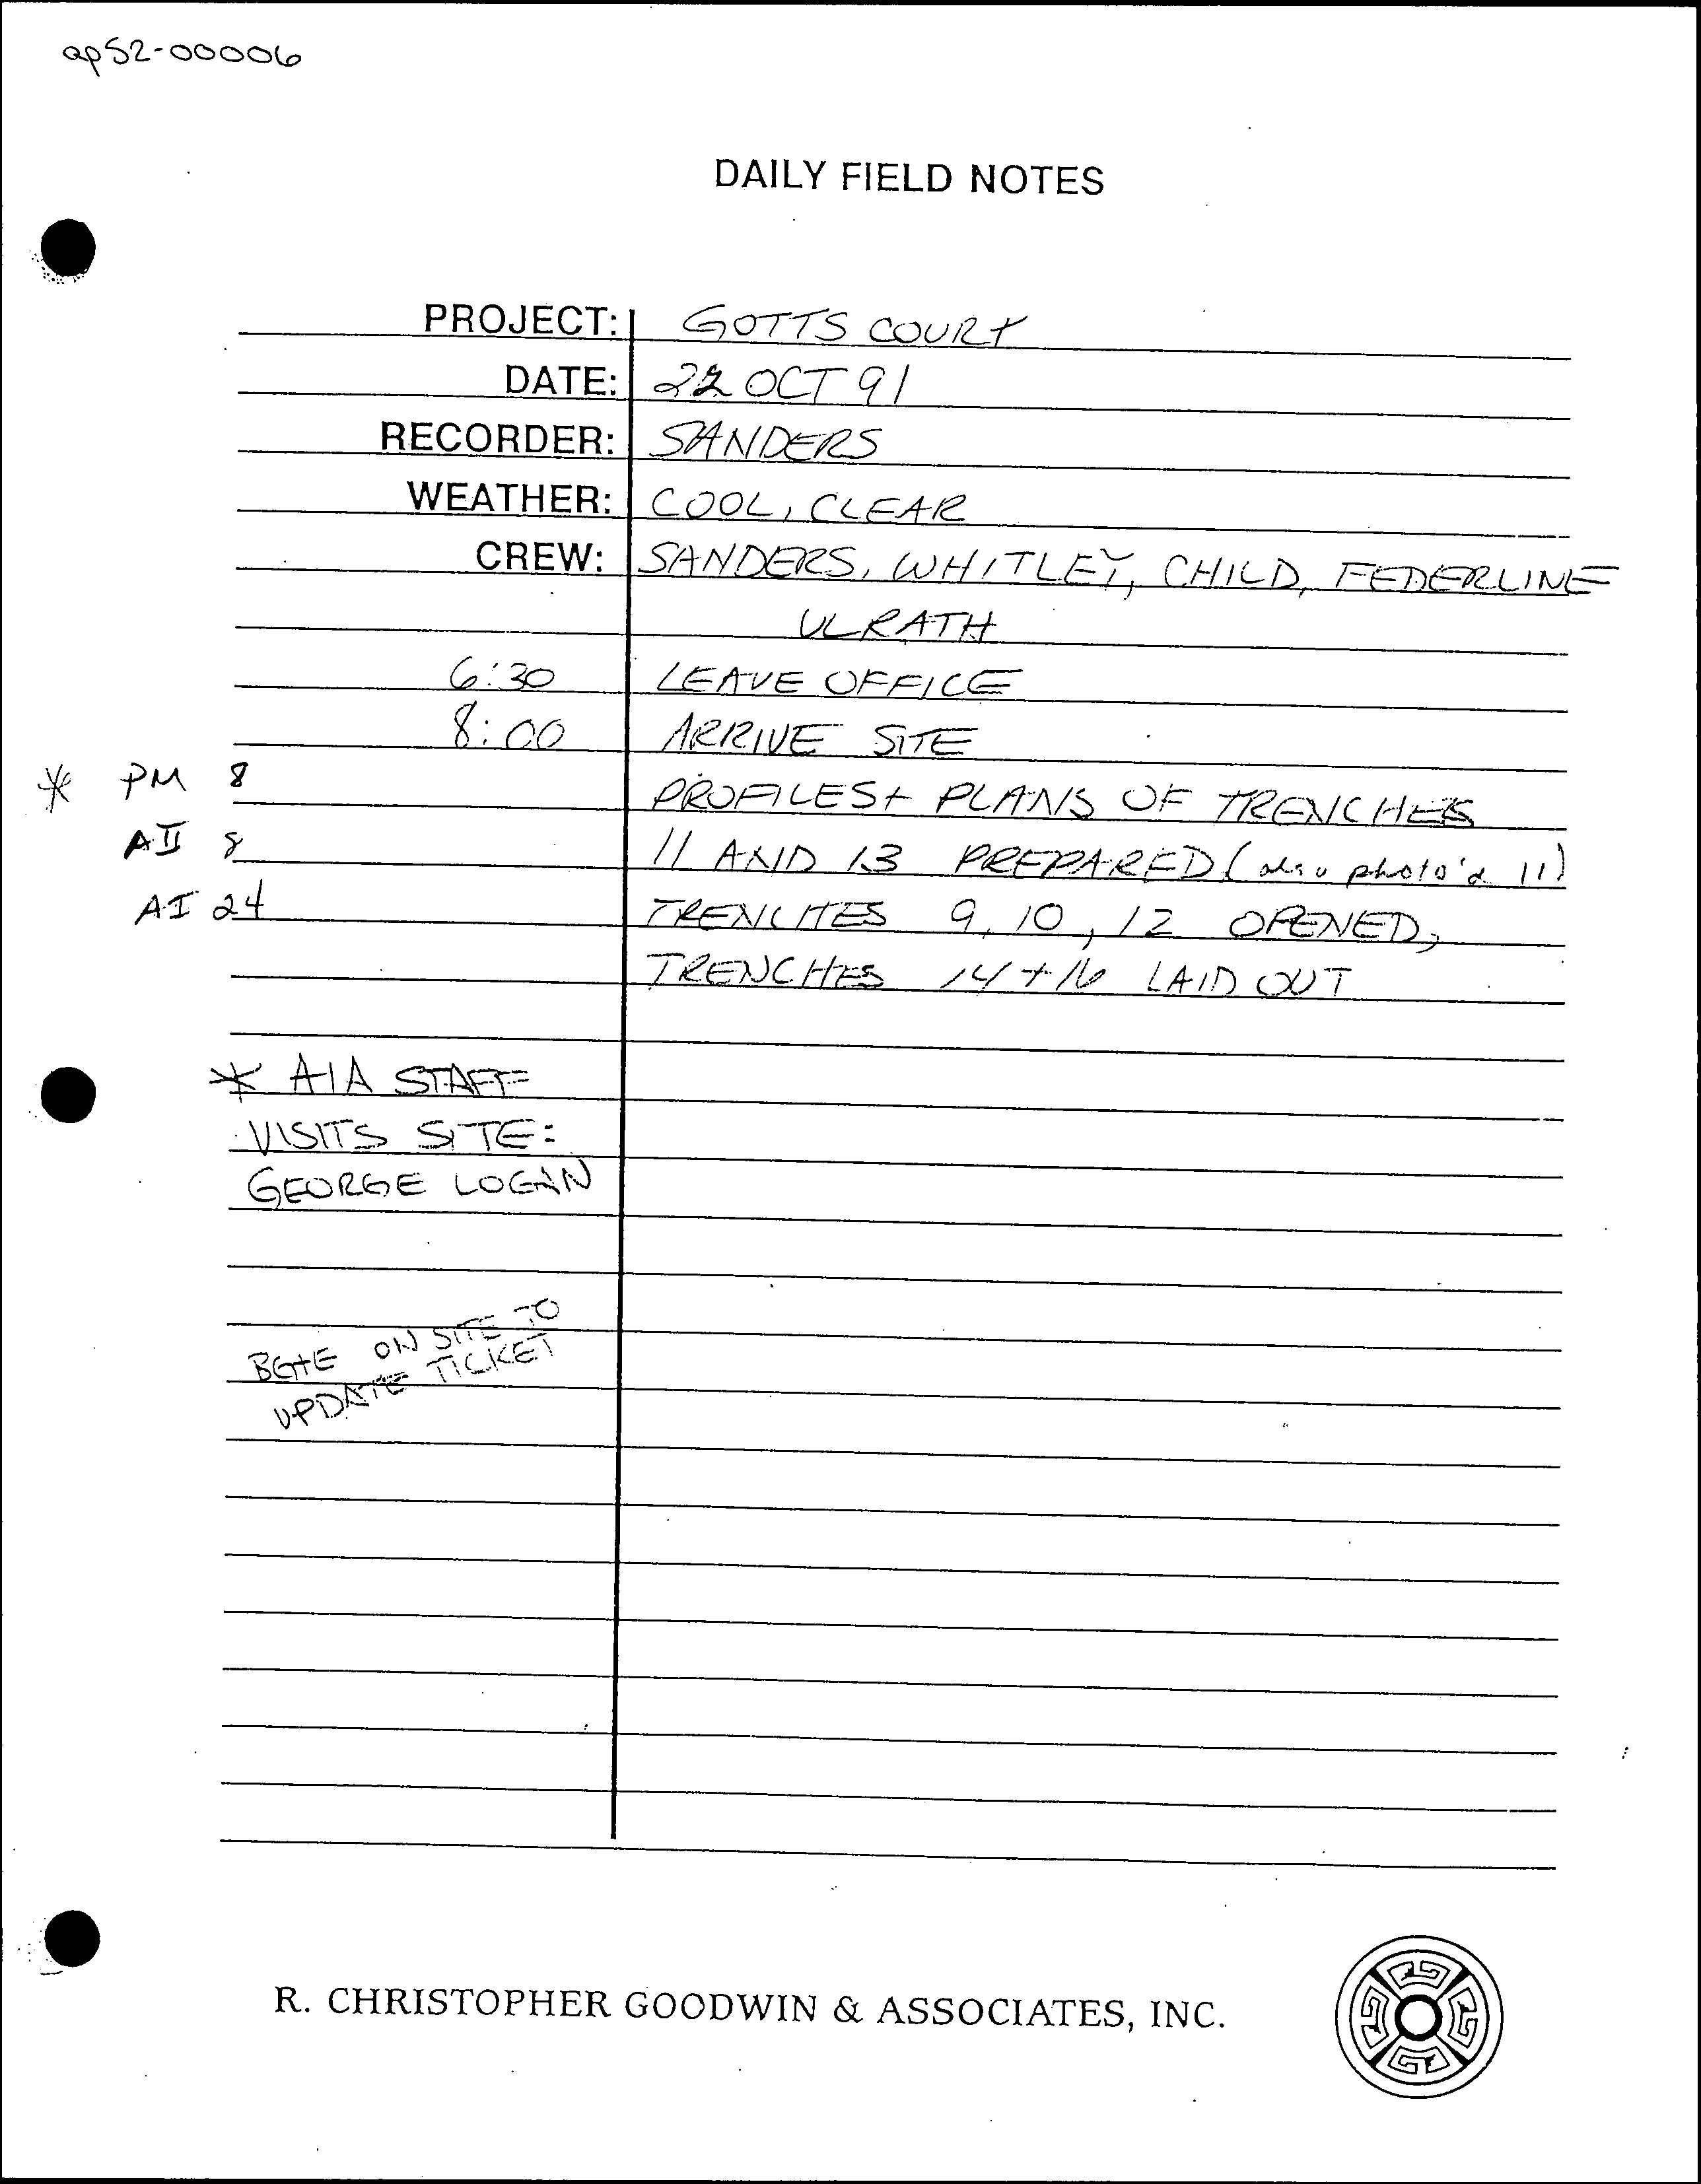 ap52-00006
DAILY FIELD NOTES
PROJECT: GOTTS COURT
DATE: 22 OCT 91
RECORDER: SANDERS
WEATHER: COOL, CLEAR
CREW: SANDERS, WHITLEY, CHILD, FEDERLINE
ULRATH
6:30 LEAVE OFFICE
8:00 ARRIVE SITE
* PM 8 PROFILES + PLANS OF TRENCHES
AII 8 11 AND 13 PREPARED (also photo'd 11)
AI 24 TRENCHES 9, 10, 12 OPENED,
TRENCHES 14 + 16 LAID OUT
* AIA STAFF
VISITS SITE:
GEORGE LOGAN
BG+E ON SITE TO
UPDATE TICKET
R. CHRISTOPHER GOODWIN & ASSOCIATES, INC.